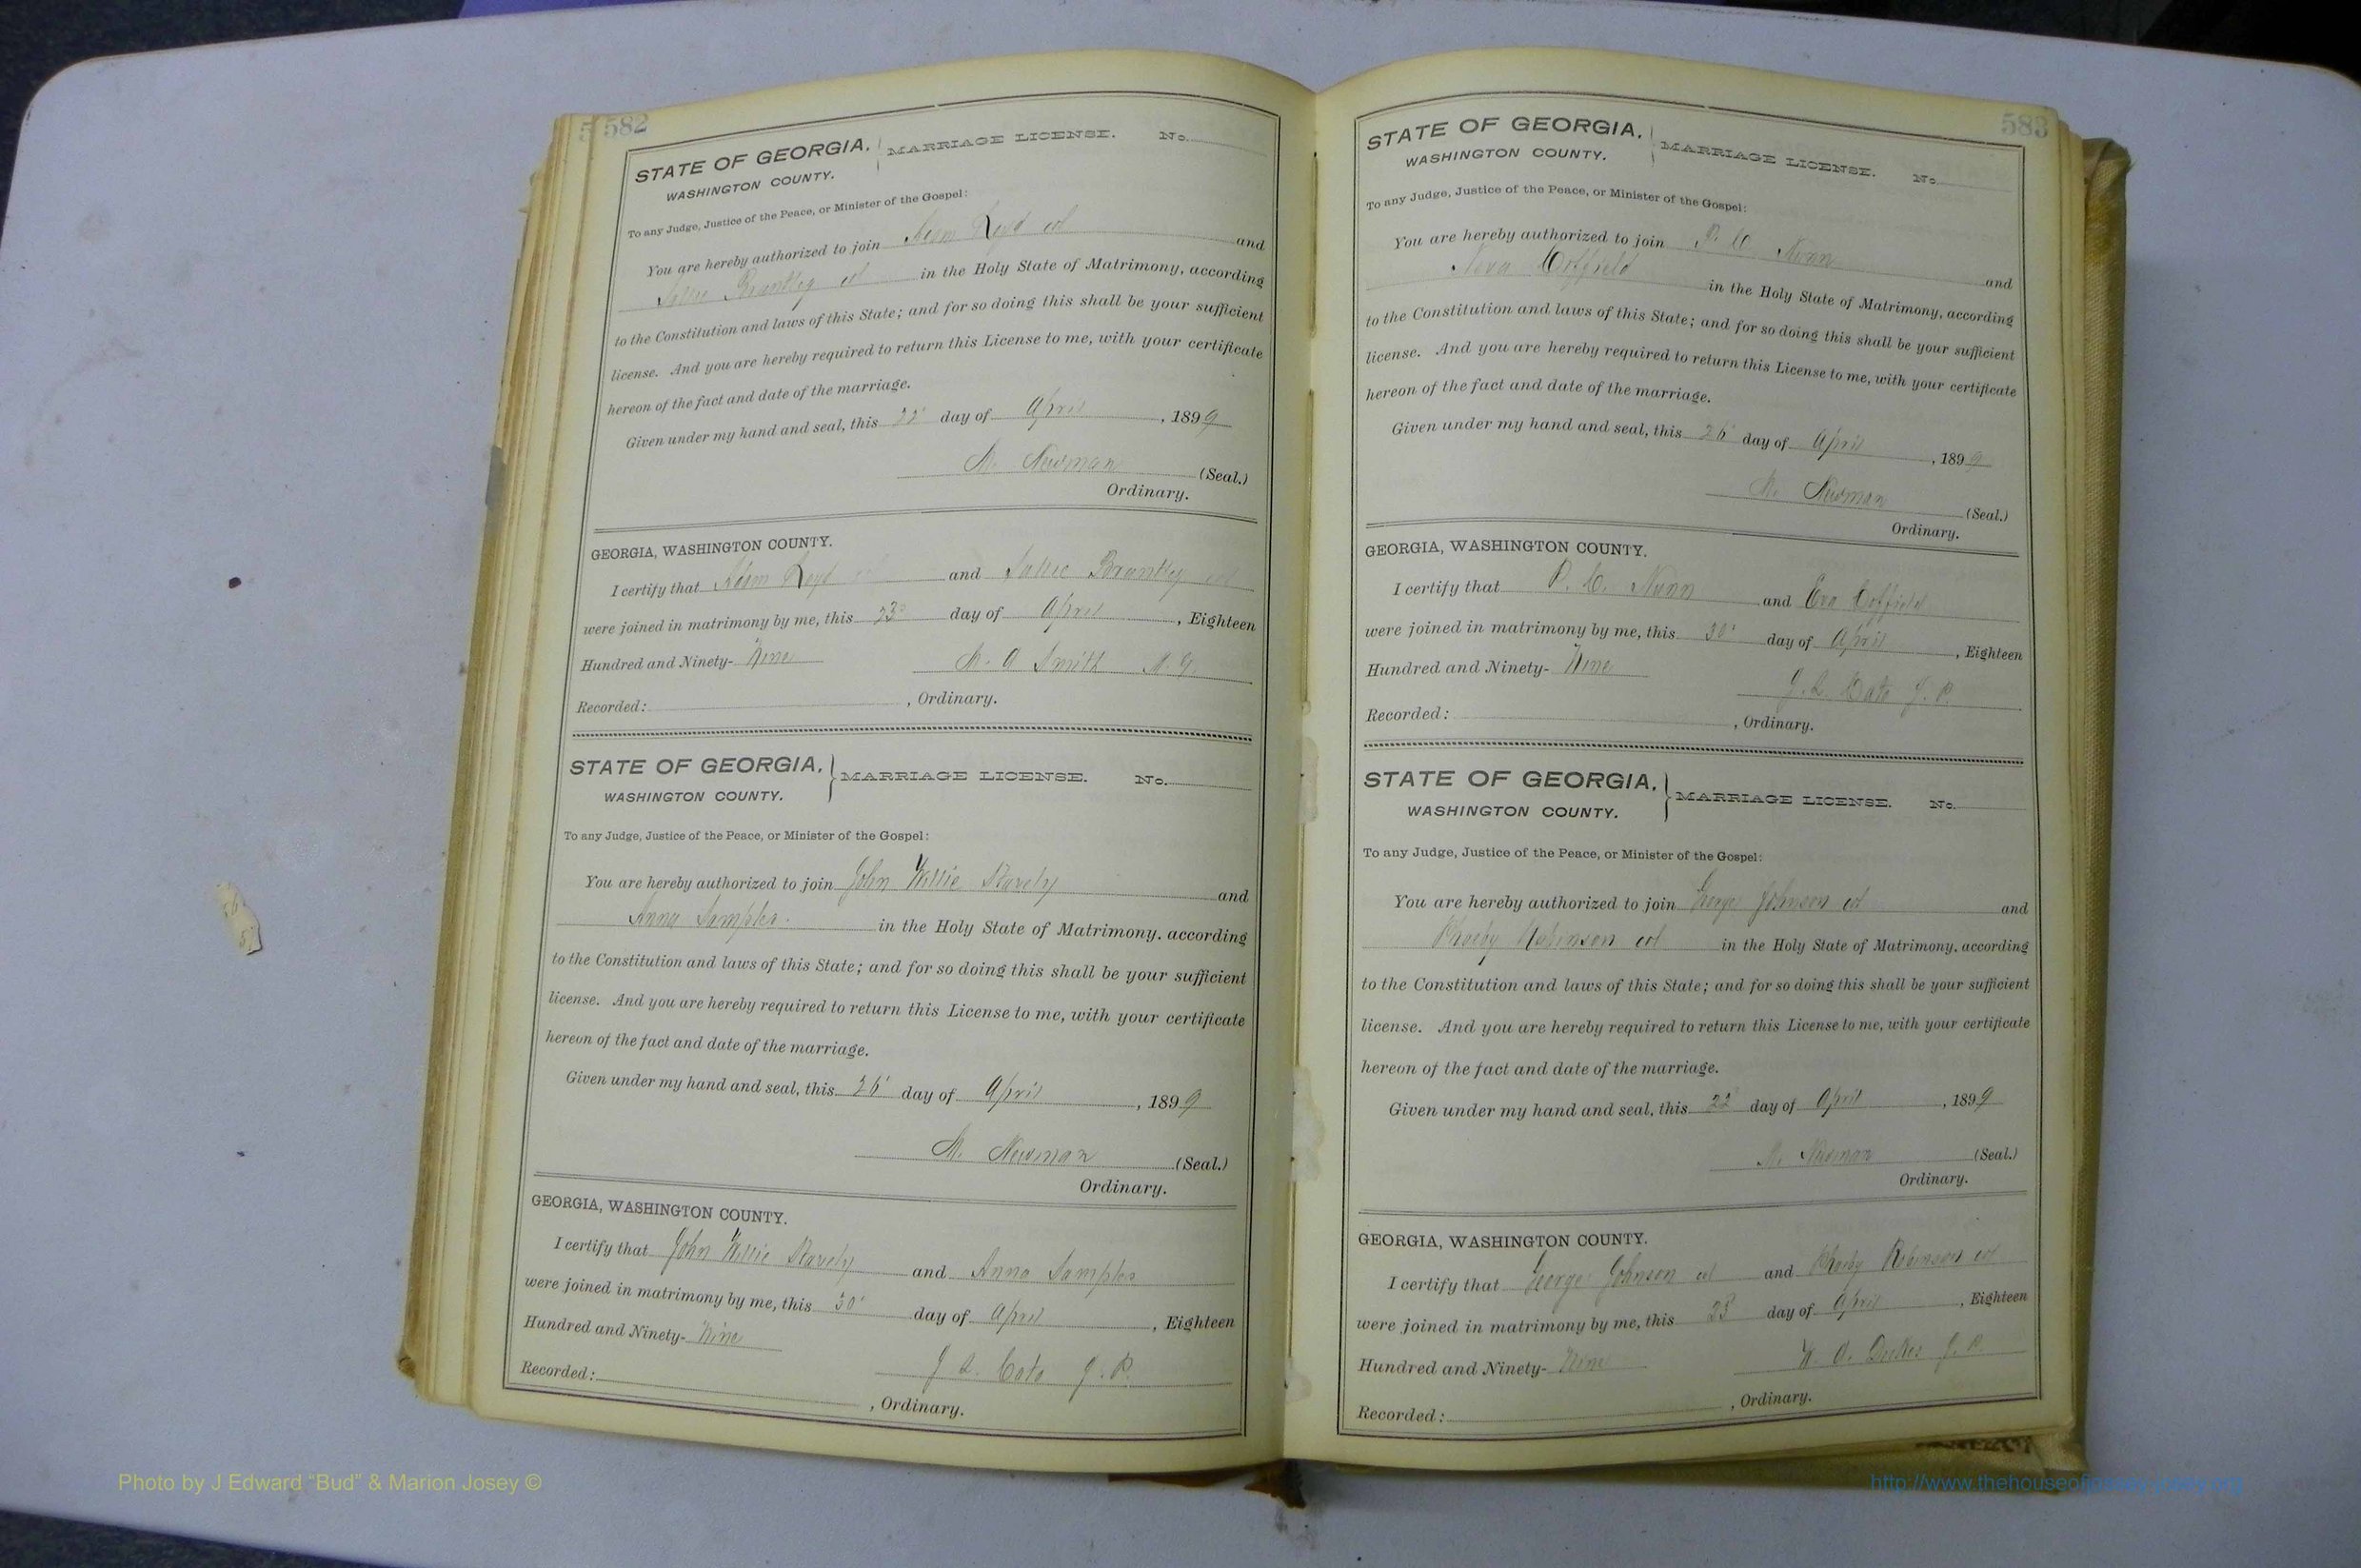 582
STATE OF GEORGIA. MARRIAGE LICENSE. No.
WASHINGTON COUNTY.
To any Judge, Justice of the Peace, or Minister of the Gospel:
You are hereby authorized to join col and
Sallie Brantley col in the Holy State of Matrimony, according
to the Constitution and laws of this State; and for so doing this shall be your sufficient
license. And you are hereby required to return this License to me, with your certificate
hereon of the fact and date of the marriage.
Given under my hand and seal, this 22 day of April, 1899
M. Newman (Seal.)
Ordinary.
GEORGIA, WASHINGTON COUNTY.
I certify that and Sallie Brantley col
were joined in matrimony by me, this 23 day of April, Eighteen
Hundred and Ninety- Nine M. A Smith M. G.
Recorded: , Ordinary.
STATE OF GEORGIA. MARRIAGE LICENSE. No.
WASHINGTON COUNTY.
To any Judge, Justice of the Peace, or Minister of the Gospel:
You are hereby authorized to join John Willie and
Anna Samples in the Holy State of Matrimony, according
to the Constitution and laws of this State; and for so doing this shall be your sufficient
license. And you are hereby required to return this License to me, with your certificate
hereon of the fact and date of the marriage.
Given under my hand and seal, this 26 day of April, 1899
M. Newman (Seal.)
Ordinary.
GEORGIA, WASHINGTON COUNTY.
I certify that John Willie and Anna Samples
were joined in matrimony by me, this 30 day of April, Eighteen
Hundred and Ninety- Nine
J. L. Cato J. P.
Recorded: , Ordinary.
583
STATE OF GEORGIA. MARRIAGE LICENSE. No.
WASHINGTON COUNTY.
To any Judge, Justice of the Peace, or Minister of the Gospel:
You are hereby authorized to join P. C. Nunn and
Coffield in the Holy State of Matrimony, according
to the Constitution and laws of this State; and for so doing this shall be your sufficient
license. And you are hereby required to return this License to me, with your certificate
hereon of the fact and date of the marriage.
Given under my hand and seal, this 26 day of April, 1899
M. Newman (Seal.)
Ordinary.
GEORGIA, WASHINGTON COUNTY.
I certify that P. C. Nunn and Eva Coffield
were joined in matrimony by me, this 30 day of April, Eighteen
Hundred and Ninety- Nine
J. L. Cato J. P.
Recorded: , Ordinary.
STATE OF GEORGIA. MARRIAGE LICENSE. No.
WASHINGTON COUNTY.
To any Judge, Justice of the Peace, or Minister of the Gospel:
You are hereby authorized to join George Johnson col and
Phoeby Robinson col in the Holy State of Matrimony, according
to the Constitution and laws of this State; and for so doing this shall be your sufficient
license. And you are hereby required to return this License to me, with your certificate
hereon of the fact and date of the marriage.
Given under my hand and seal, this 22 day of April, 1899
M. Newman (Seal.)
Ordinary.
GEORGIA, WASHINGTON COUNTY.
I certify that George Johnson col and Phoeby Robinson col
were joined in matrimony by me, this 23 day of April, Eighteen
Hundred and Ninety- Nine
Dukes J. P.
Recorded: , Ordinary.
Photo by J Edward “Bud” & Marion Josey ©